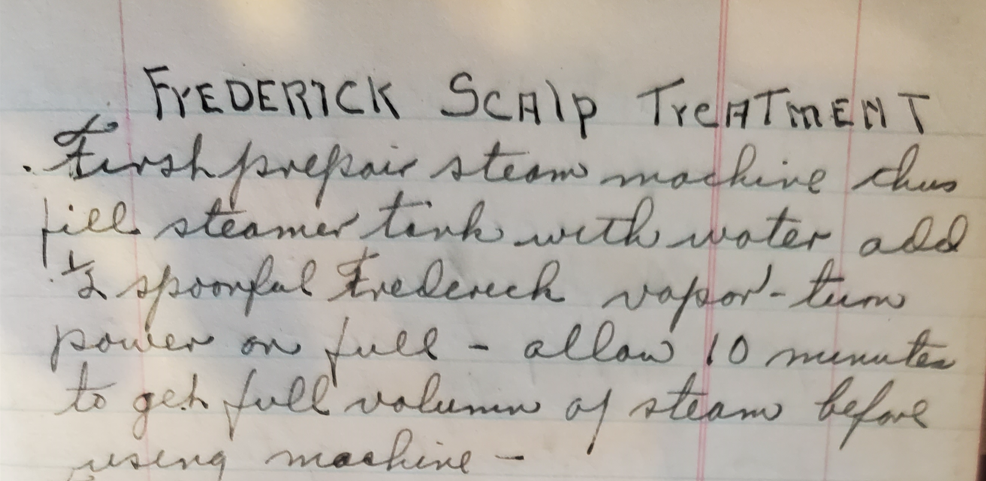 FREDERICK SCAlp TreATMENT
First prepair steam machine thus
fill steamer tank with water add
1/2 spoonful Frederick vapor - turn
power on full - allow 10 minutes
to get full volumn of steam before
using machine -